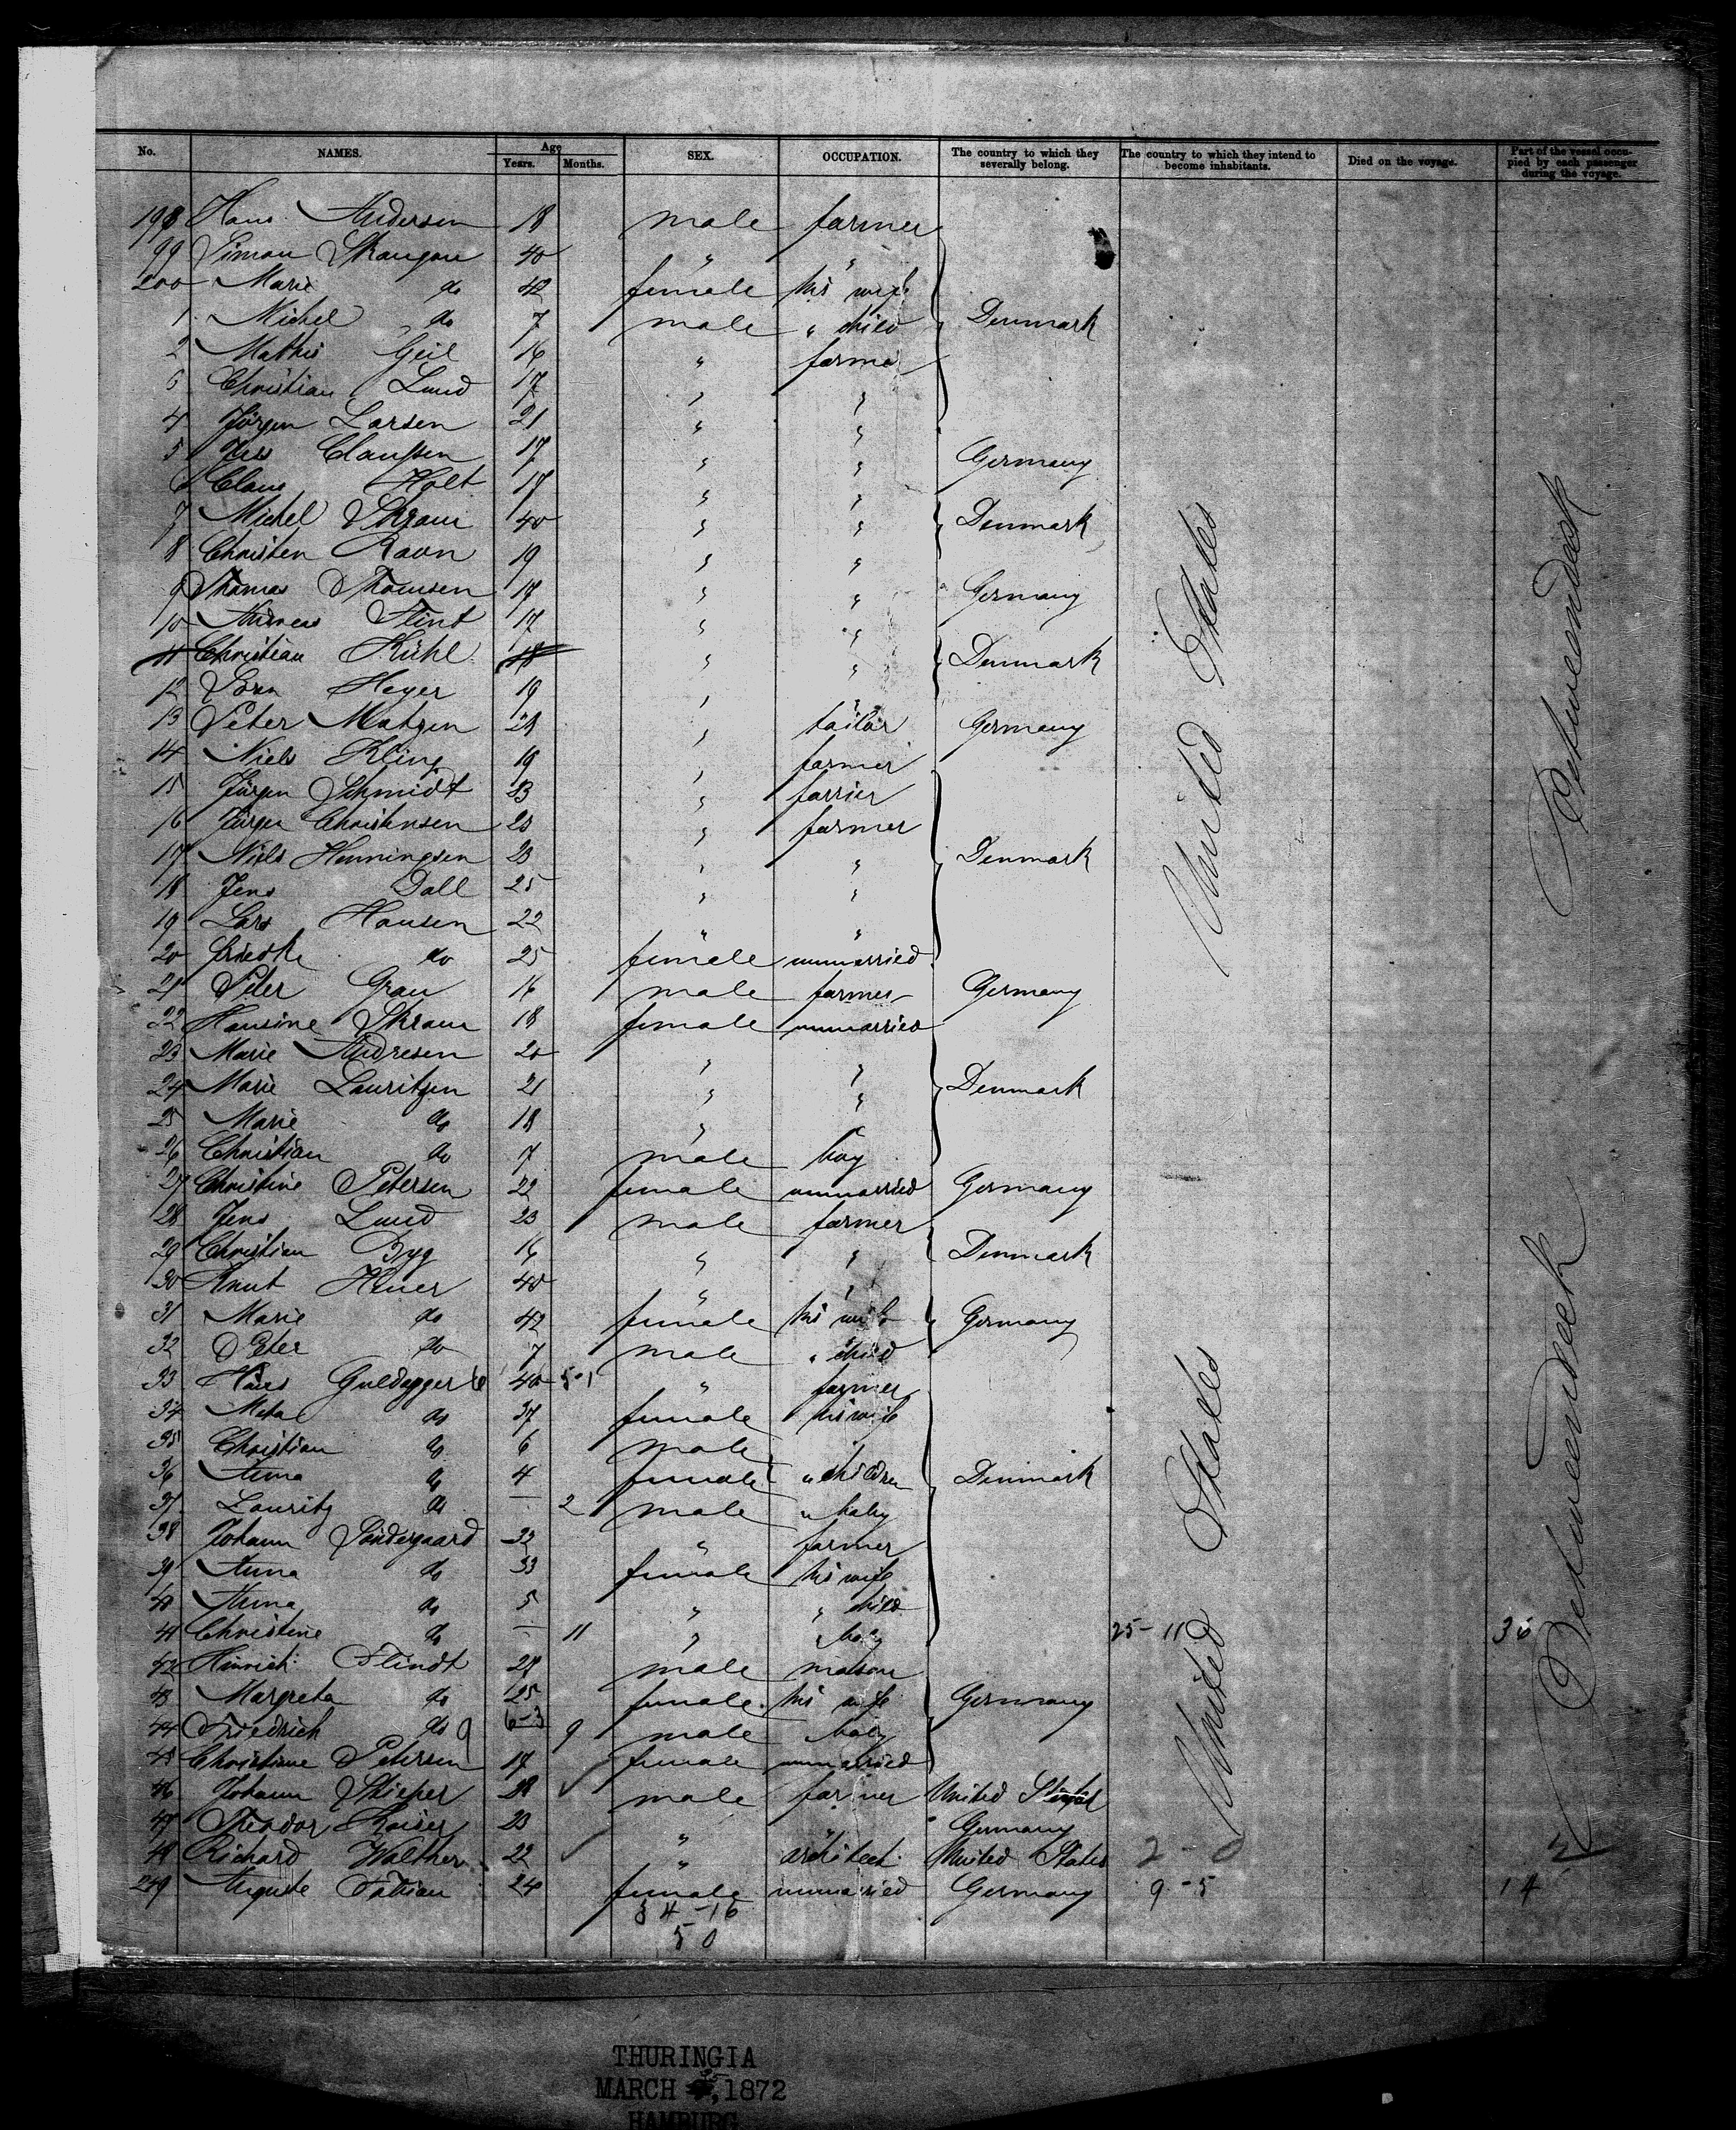 No. NAMES. Age Years. Months. SEX. OCCUPATION. The country to which they severally belong. The country to which they intend to become inhabitants. Died on the voyage. Part of the vessel occupied by each passenger during the voyage.
198 Hans Andersen 18 male farmer
99 Simon 40 " "
200 Marie do 42 female his wife
1 Michel do 7 male " child Denmark
2 Geil 16 " farmer
Christian Lund 17 " "
4 Jürgen Larsen 21 " "
5 Jes Claussen 17 " " Germany
6 Claus Holt 17 " "
7 Michel Skram 40 " " Denmark
8 Christen Raon 19 " "
9 Thomas Thomsen 17 " " Germany
10 Flint 17 " "
11 Christian Kühl " " Denmark
12 Sörn Heyer 19 " "
13 Peter Matzen " tailor Germany
14 Niels Kling 19 " farmer
15 Jürgen Schmidt 23 " farrier
16 Jürgen Christensen 23 " farmer
17 Niels Henningsen 23 " " Denmark
18 Jens Dall 25 " "
19 Lars Hansen 22 " "
20 do 25 female unmarried
21 Peter Grau 16 male farmer Germany
22 Hansine Skram 18 female unmarried
23 Marie Andresen 20 " "
24 Marie Lauritzen 21 " " Denmark
25 Marie do 18 " "
26 Christian do 7 male boy
27 Christine Petersen 22 female unmarried Germany
28 Jens Lund 23 male farmer
29 Christian Byg 16 " " Denmark
30 Knut 40 " "
31 Marie do 42 female his wife Germany
32 Peter do 7 male " child
33 Hans 40 5-1 " farmer
34 Meta do 37 female his wife
35 Christian do 6 male
36 Anna do 4 female " children Denmark
37 Lauritz do — 2 male " baby
38 Johann Söndergaard 32 " farmer
39 Anna do 33 female his wife
40 Anna do 5 " " child
41 Christine do — 11 " " baby 25-11 36
42 Hinrich Flindt male
43 Margreta do 25 female his wife Germany
44 Friedrich do 9 6-3 9 male baby
45 Christiane Petersen 17 female unmarried
46 Johann male farmer United States
47 Theodor Kaiser 23 " " Germany
48 Richard Walther 22 " architect United States 2-0
249 Auguste Fabian 24 female unmarried Germany 9-5 14
34-16
50
United States
United States
Betweendeck
Betweendeck
THURINGIA
MARCH 25, 1872
HAMBURG